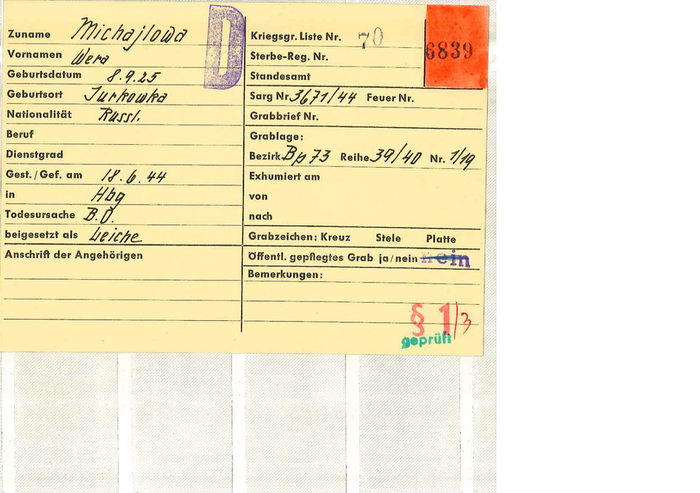 Zuname Michajlowa
Vornamen Wera
Geburtsdatum 8.9.25
Geburtsort Jurkowka
Nationalität Russl.
Beruf
Dienstgrad
Gest./Gef. am 18.6.44
in Hbg
Todesursache B.O.
beigesetzt als Leiche
Anschrift der Angehörigen
D
Kriegsgr. Liste Nr. 70
6839
Sterbe-Reg. Nr.
Standesamt
Sarg Nr. 3671/44 Feuer Nr.
Grabbrief Nr.
Grablage:
Bezirk Bp 73 Reihe 39/40 Nr. 1/19
Exhumiert am
von
nach
Grabzeichen: Kreuz Stele Platte
Öffentl. gepflegtes Grab ja/nein nein
Bemerkungen:
§ 1/3
geprüft